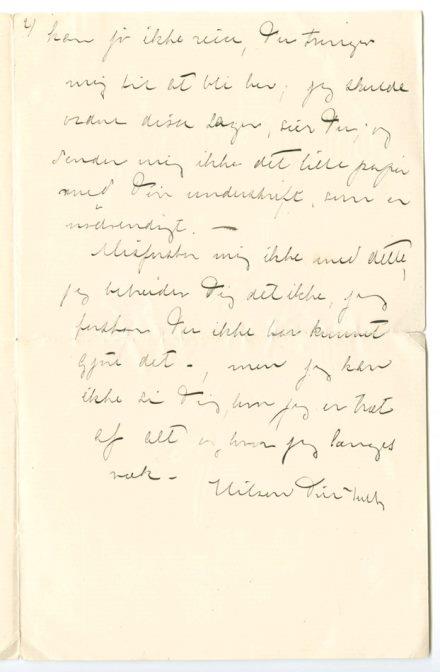 4)
kan jo ikke reise, Du tvinger
mig til at bli her; jeg skulde
ordne disse sager, sier Du, og
sender mig ikke det lille papir
med Din underskrift, som er
nödvendigt. —
Misforstaa mig ikke med dette,
jeg bebreider Dig det ikke, jeg
forstaar Du ikke har kunnet
gjøre det –, men jeg kan
ikke si Dig, hvor jeg er træt
af alt og hvor jeg længes
væk –
Hilsen Din